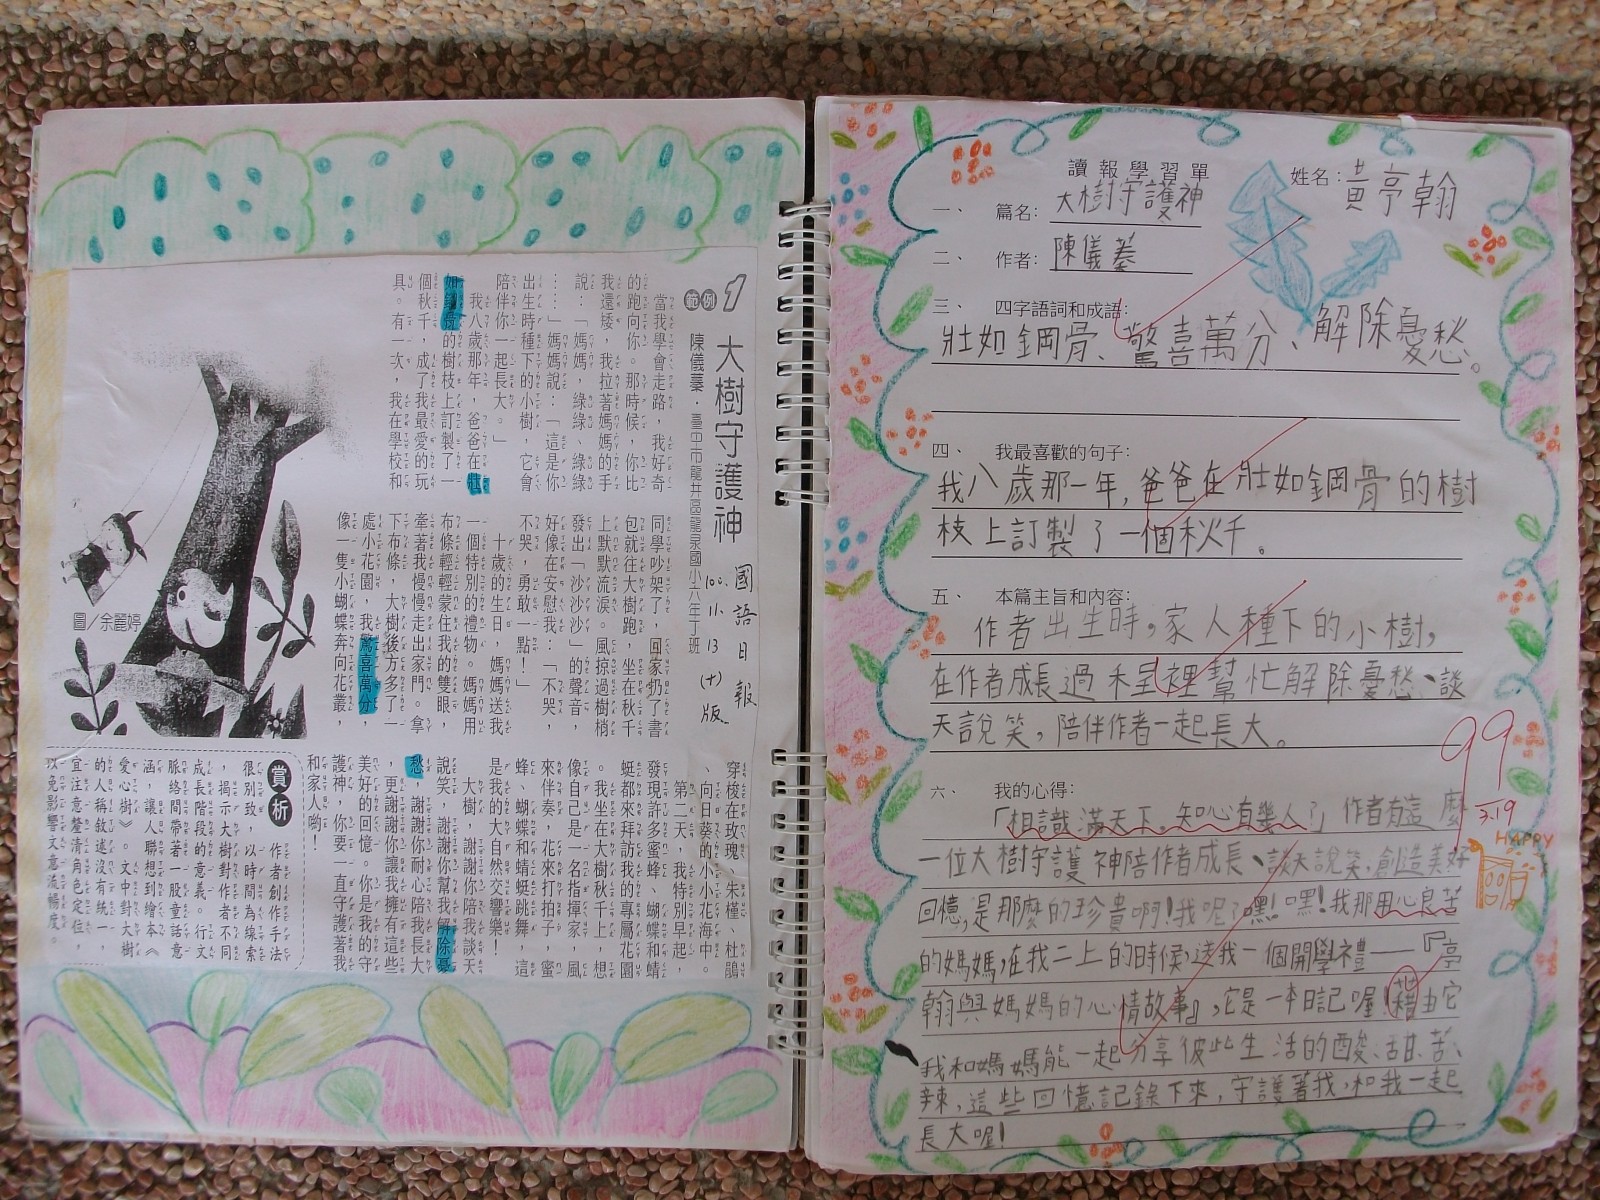 範例1
大樹守護神
陳儀蓁．臺中市龍井區龍泉國小六年丁班
國語日報
100.11.13(十)版
當我學會走路，我好奇
的跑向你。那時候，你比
我還矮，我拉著媽媽的手
說：「媽媽，綠綠、綠綠
……」媽媽說：「這是你
出生時種下的小樹，它會
陪伴你一起長大。」
我八歲那年，爸爸在壯
如鋼骨的樹枝上訂製了一
個秋千，成了我最愛的玩
具。有一次，我在學校和
同學吵架了，回家扔了書
包就往大樹跑，坐在秋千
上默默流淚。風掠過樹梢
發出「沙沙沙」的聲音，
好像在安慰我：「不哭，
不哭，勇敢一點！」
十歲的生日，媽媽送我
一個特別的禮物。媽媽用
布條輕輕蒙住我的雙眼，
牽著我慢慢走出家門。拿
下布條，大樹後方多了一
處小花園，我驚喜萬分，
像一隻小蝴蝶奔向花叢，
穿梭在玫瑰、朱槿、杜鵑
、向日葵的小小花海中。
第二天，我特別早起，
發現許多蜜蜂、蝴蝶和蜻
蜓都來拜訪我的專屬花園
。我坐在大樹秋千上，想
像自己是一名指揮家，風
來伴奏，花來打拍子，蜜
蜂、蝴蝶和蜻蜓跳舞，這
是我的大自然交響樂！
大樹，謝謝你陪我談天
說笑，謝謝你幫我解除憂
愁，謝謝你耐心陪我長大
，更謝謝你讓我擁有這些
美好的回憶。你是我的守
護神，你要一直守護著我
和家人喲！
圖／余麗婷
賞析
作者創作手法
很別致，以時間為線索
，揭示大樹對作者不同
成長階段的意義。行文
脈絡間帶著一股童話意
涵，讓人聯想到繪本《
愛心樹》。文中對大樹
的人稱敘述沒有統一，
宜注意釐清角色定位，
以免影響文意流暢度。
讀報學習單
姓名：黃亭翰
一、 篇名：大樹守護神
二、 作者：陳儀蓁
三、 四字語詞和成語：
壯如鋼骨、驚喜萬分、解除憂愁。
四、 我最喜歡的句子：
我八歲那一年，爸爸在壯如鋼骨的樹
枝上訂製了一個秋千。
五、 本篇主旨和內容：
作者出生時，家人種下的小樹，
在作者成長過程裡幫忙解除憂愁、談
天說笑，陪伴作者一起長大。
六、 我的心得：
「相識滿天下，知心有幾人」作者有這麼
一位大樹守護神陪作者成長、談天說笑，創造美好
回憶，是那麼的珍貴啊！我呢？嘿！嘿！我那用心良苦
的媽媽，在我二上的時候，送我一個開學禮──『亭
翰與媽媽的心情故事』，它是一本日記喔！藉由它
我和媽媽能一起分享彼此生活的酸、甜、苦、
辣，這些回憶記錄下來，守護著我，和我一起
長大喔！
99
3.19
HAPPY